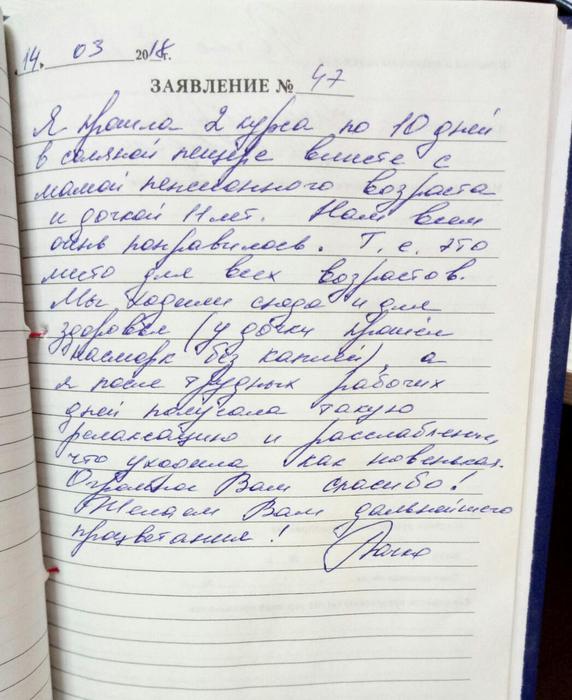 14. 03 2018г.
ЗАЯВЛЕНИЕ № 47
Я прошла 2 курса по 10 дней
в соляной пещере вместе с
мамой пенсионного возраста
и дочкой 11 лет. Нам всем
очень понравилось. Т.е. это
место для всех возрастов.
Мы ходили сюда и для
здоровья (у дочки прошёл
насморк без каплей), а
я после трудных рабочих
дней получала такую
релаксацию и расслабление,
что уходила как новенькая.
Огромное Вам спасибо!
Желаем Вам дальнейшего
процветания!